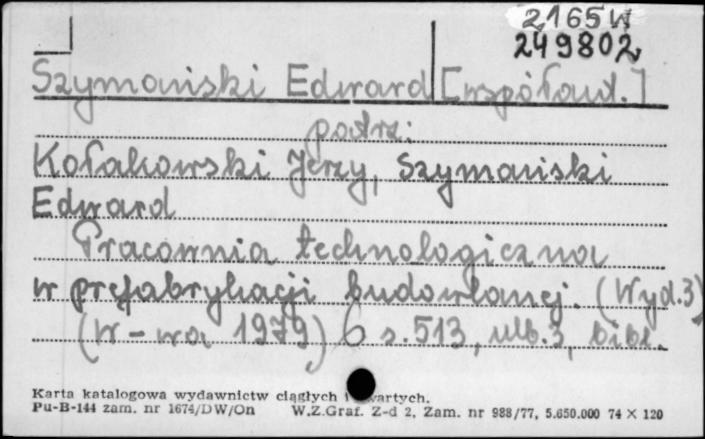 2165W
249802
Szymański Edward [współaut.]
patrz:
Kołakowski Jerzy, Szymański
Edward
Pracownia technologiczna
w prefabrykacji budowlanej. (Wyd.3)
(W-wa 1979) s.513, nlb.3, bibl.
Karta katalogowa wydawnictw ciągłych i zwartych.
Pu-B-144 zam. nr 1674/DW/On W.Z.Graf. Z-d 2, Zam. nr 988/77, 5.650.000 74 X 120